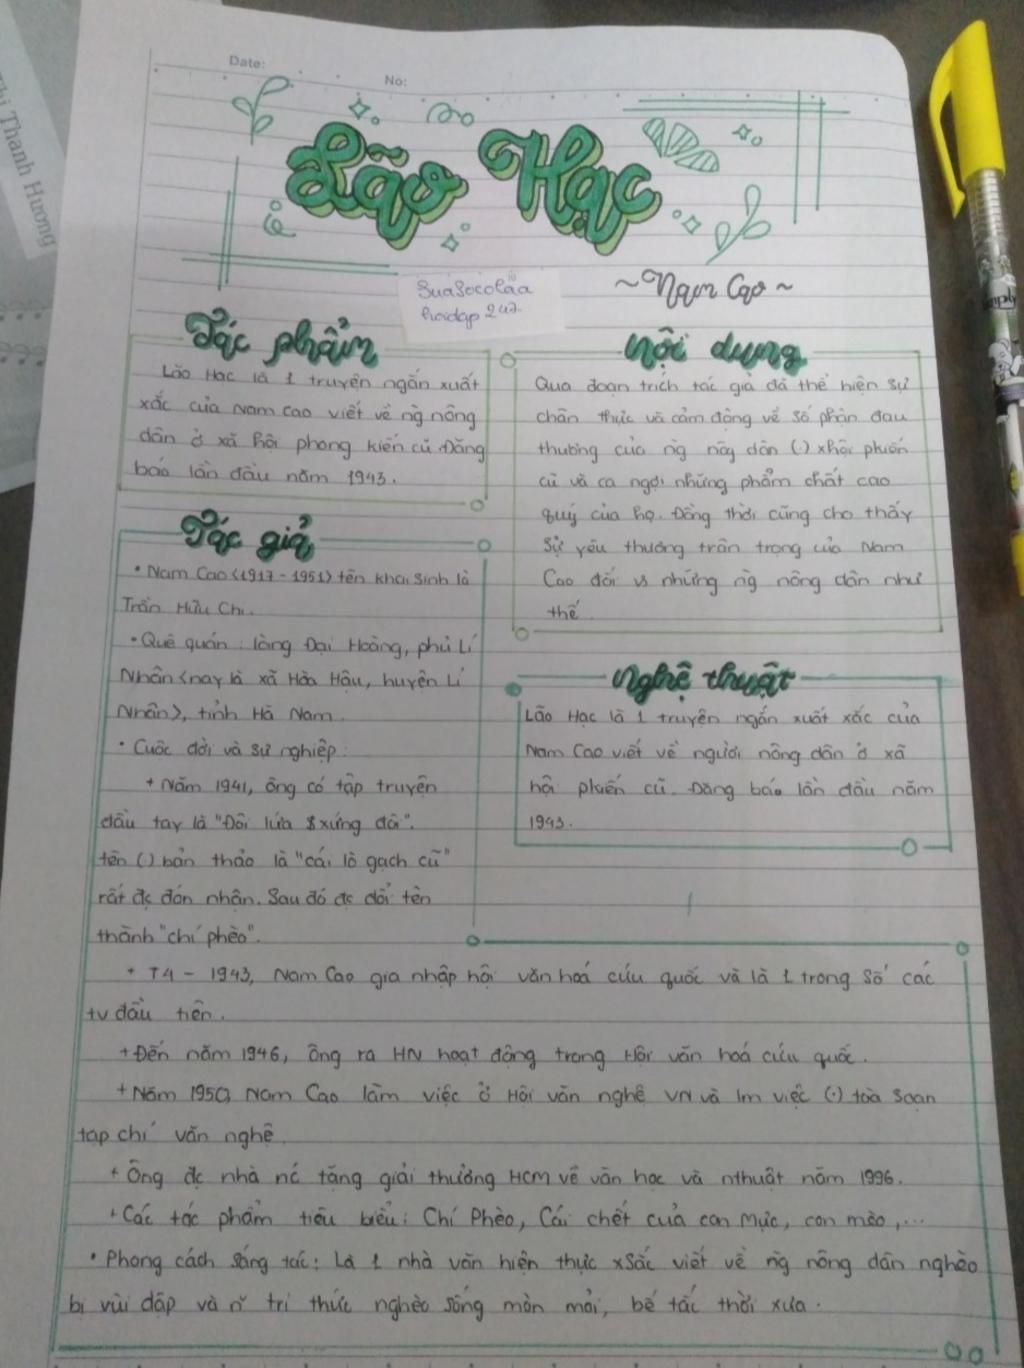 Date:
No:
Thị Thanh Hương
Lão Hạc
~Nam Cao~
Suasocolaa
hoidap247.
Tác phẩm
Lão Hạc là 1 truyện ngắn xuất
xắc của Nam Cao viết về ng̀ nông
dân ở xã hội phong kiến cũ Đăng
báo lần đầu năm 1943.
Tác giả
• Nam Cao <1917 - 1951> tên khai sinh là
Trần Hữu Chi.
• Quê quán : làng Đại Hoàng, phủ Lí
Nhân <nay là xã Hòa Hậu, huyện Lí
Nhân>, tỉnh Hà Nam.
• Cuộc đời và sự nghiệp:
+ Năm 1941, ông có tập truyện
đầu tay là "Đôi lứa xứng đôi".
tên (.) bản thảo là "cái lò gạch cũ"
rất đc đón nhận. Sau đó đc đổi tên
thành "chí phèo".
+ T4 - 1943, Nam Cao gia nhập hội văn hoá cứu quốc và là 1 trong số các
tv đầu tiên.
+ Đến năm 1946, ông ra HN hoạt động trong Hội văn hoá cứu quốc.
+ Năm 1950, Nam Cao làm việc ở Hội văn nghệ VN và lm việc (.) toà soạn
tạp chí văn nghệ.
+ Ông đc nhà nc tặng giải thưởng HCM về văn học và nthuật năm 1996.
+ Các tác phẩm tiêu biểu: Chí Phèo, Cái chết của con Mực, con mèo,...
• Phong cách sáng tác: Là 1 nhà văn hiện thực xsắc viết về ng̀ nông dân nghèo
bị vùi dập và n~ trí thức nghèo sống mòn mỏi, bế tắc thời xưa.
Nội dung
Qua đoạn trích tác giả đã thể hiện sự
chân thực và cảm động về số phận đau
thương của ng̀ nông dân (.) xhội pkiến
cũ và ca ngợi những phẩm chất cao
quý của họ. Đồng thời cũng cho thấy
sự yêu thương trân trọng của Nam
Cao đối vs những ng̀ nông dân như
thế.
Nghệ thuật
Lão Hạc là 1 truyện ngắn xuất xắc của
Nam Cao viết về người nông dân ở xã
hội pkiến cũ. Đăng báo lần đầu năm
1943.